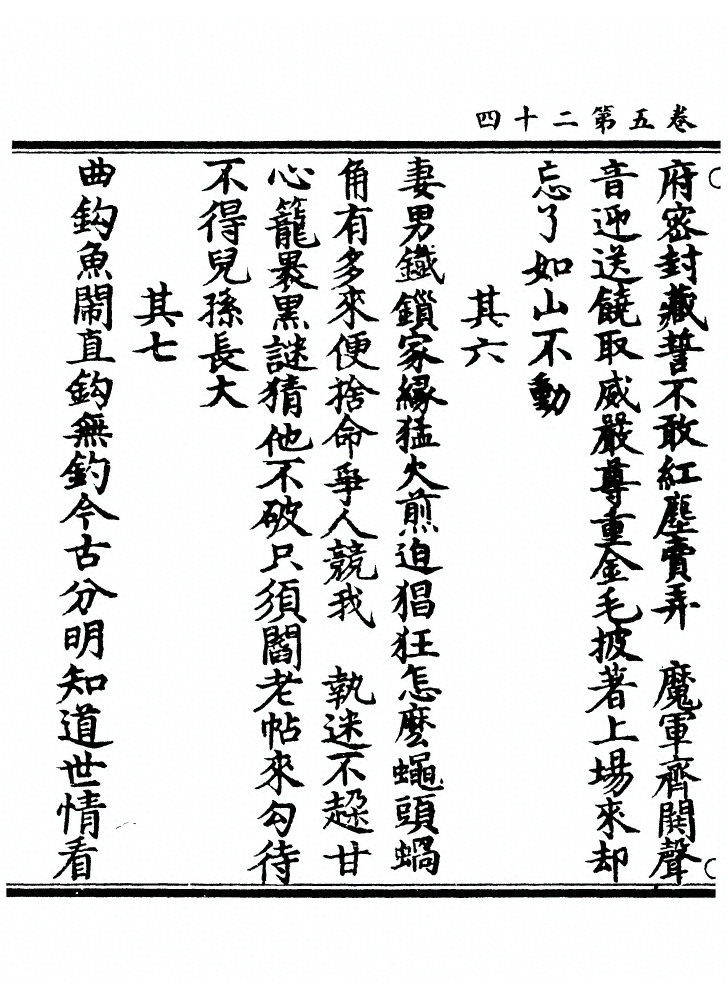 卷五第二十四
府密封藏誓不敢紅塵賣弄　魔軍齊閧聲
音迎送饒取威嚴尊重金毛披著上場來却
忘了如山不動
其六
妻男鐵鎖家緣猛火煎迫猖狂怎麼蠅頭蝸
角有多來便捨命爭人競我　執迷不趓甘
心籠罨黑謎猜他不破只須閻老帖來勾待
不得兒孫長大
其七
曲鈎魚鬧直鈎無釣今古分明知道世情看